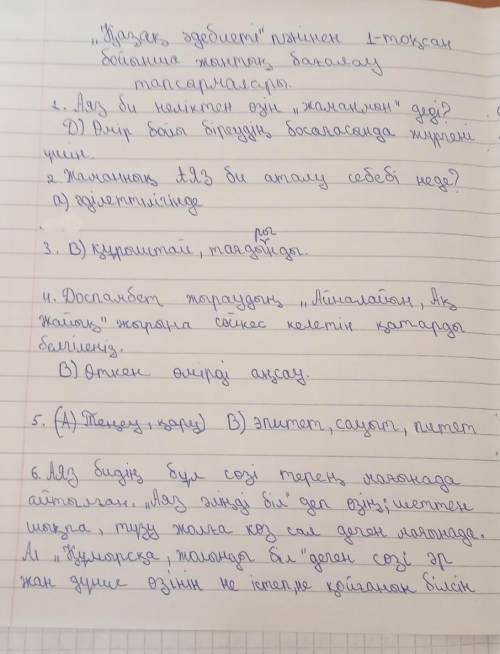 "Қазақ әдебиеті" пәнінен 1-тоқсан
бойынша жиынтық бағалау
тапсырмалары.
1. Аяз би неліктен өзін "жаманмын" деді?
Д) Өмір бойы біреудің босағасында жүргені
үшін.
2. Жаманның Аяз би аталу себебі неде?
а) әділеттілігінде
3. В) құрыштай, таядыңды.
ры
4. Доспамбет жыраудың "Айналайын, Ақ
Жайық" жырына сәйкес келетін қатарды
белгілеңіз.
В) Өткен өмірді аңсау.
5. (А) Теңеу, қару) В) эпитет, сауыт, питет
6. Аяз бидің бұл сөзі терең мағынада
айтылған. "Аяз әліңді біл" деп өзің; шеттен
шықпа, түзу жолға көз сал деген мағынада.
Ал "Құмырсқа, жолыңды біл" деген сөзі әр
жан дүние өзінің не істеп, не қойғанын білсін